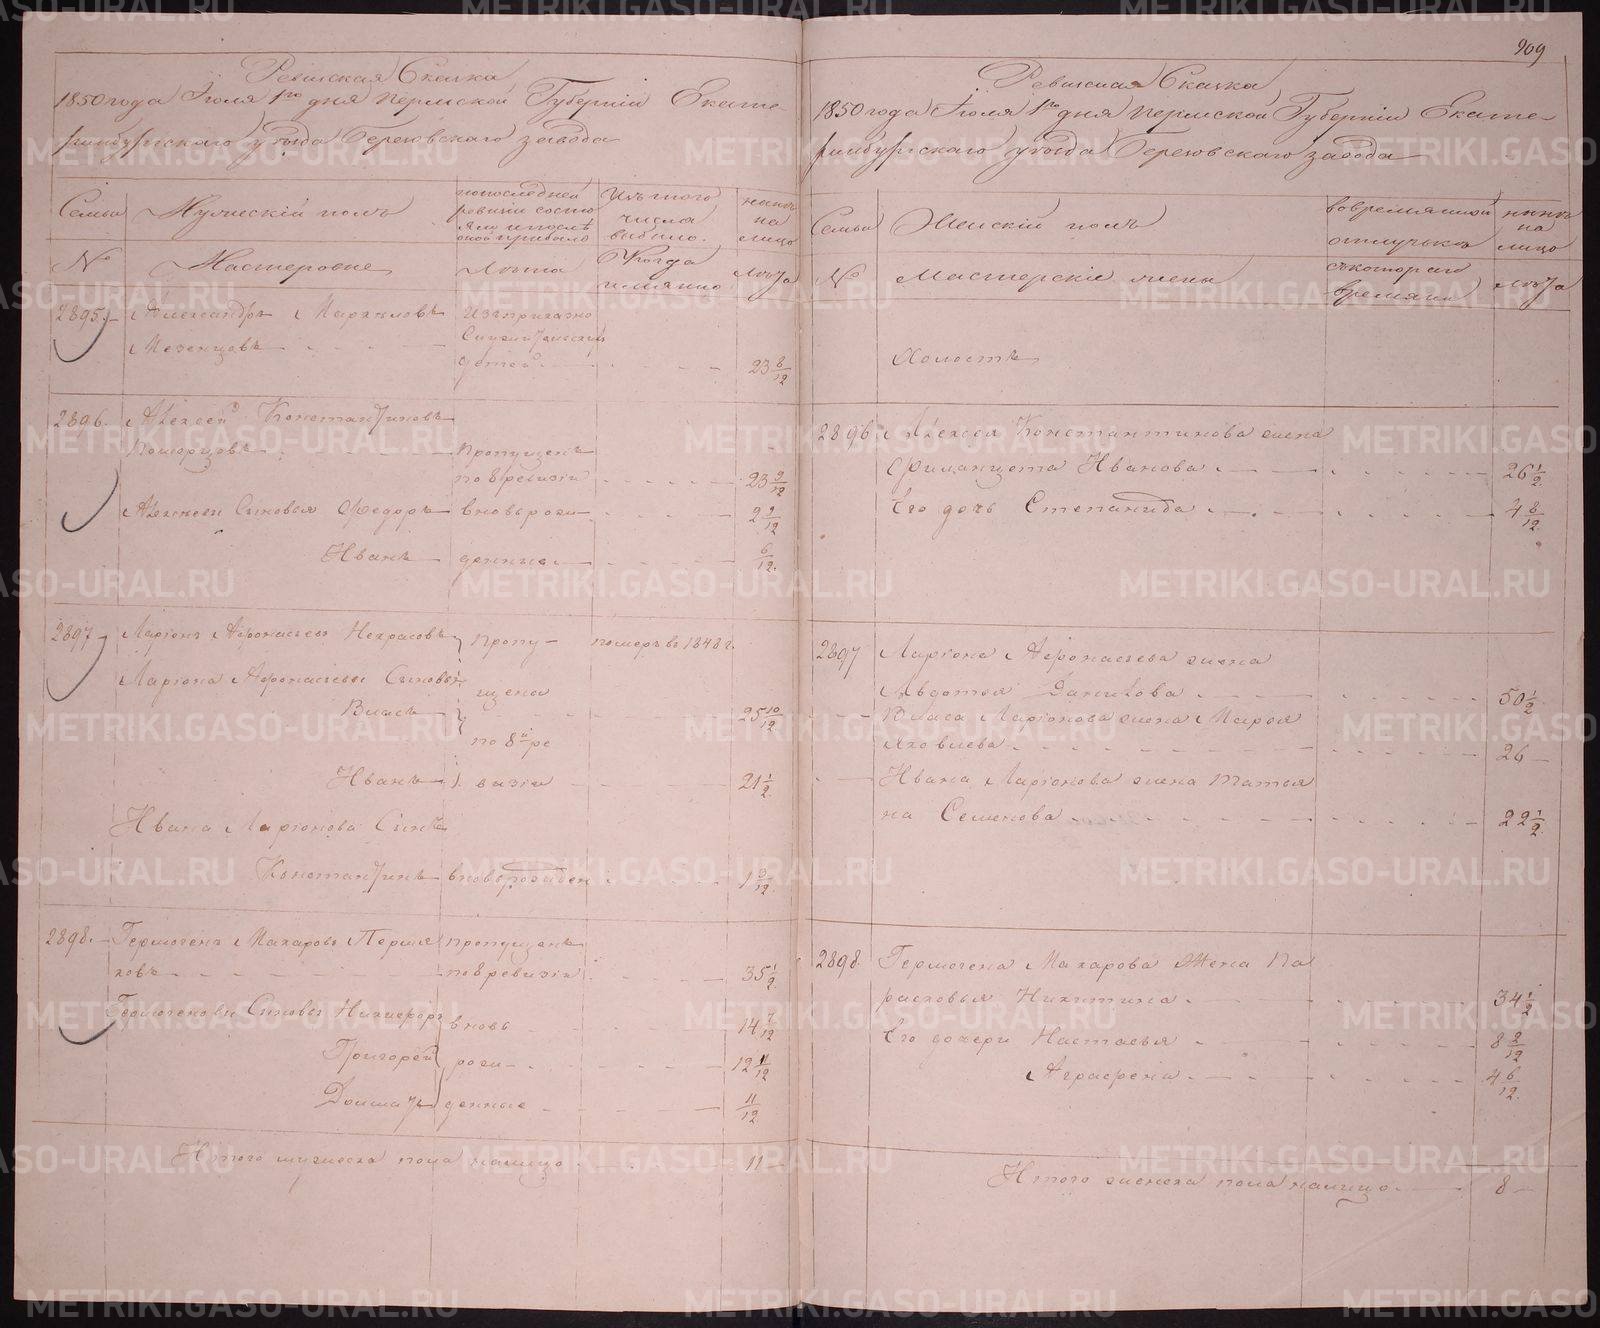 Ревизская Сказка
1850 года Июля 1го дня Пермской Губернiи Екате-
ринбургскаго уѣзда Березовскаго завода
Семьи
Мужескiй полъ
по последней
ревизiи состо
яло и послѣ
оной прибыло
Изъ того
числа
выбыло.
нынѣ
на
лицо
№
Мастеровые
Лѣта
Когда
имянно
Лѣта
2895.
Александръ Маркѣловъ
Мезенцовъ
Изъ приказно
Служительскихъ
детей
23 8/12
2896.
Алексей Константиновъ
Поморцовъ
пропущенъ
по 8 ревизiи
23 9/12
Алексеи Сыновья Федоръ
вновь рож-
2 9/12
Иванъ
денные
6/12.
2897
Ларiонъ Афонасьевъ Некрасовъ
пропу-
померъ въ 1848 г.
Ларiона Афонасьевы Сыновья
щена
Власъ
25 10/12
по 8й ре
Иванъ
визiи
21 1/2
Ивана Ларiонова Сынъ
Константинъ
вновь рожден
1 9/12.
2898.
Гермогенъ Макаровъ Перми
ковъ
пропущенъ
по 8 ревизiи
35 1/2
Гермогеновы Сыновья Никифоръ
вновь
14 7/12
Григорей
рож-
12 11/12
денные
11/12
Итого мужеска пола налицо
11
209
Ревизская Сказка
1850 года Июля 1го дня Пермской Губернiи Екате-
ринбургскаго уѣзда Березовскаго завода
Семьи
Женскiй полъ
во временной
отлучьке
нынѣ
на
лицо
№
Мастерскiе жены
съ котораго
времяни
Лѣта
Холостъ
2896
Алексея Константинова жена
Филанцета Иванова
26 1/2
Его дочь Степанида
4 8/12
2897
Ларiона Афонасьева жена
Авдотья Данилова
50 1/2
Власа Ларiонова жена Марья
Яковлева
26
Ивана Ларiонова жена Татья
на Семенова
22 1/2
2898.
Гермогена Макарова Жена Па
расковья Никитина
34 1/2
Его дочери Настасья
8 2/12
Аграфена
4 6/12.
Итого женска пола налицо
8
METRIKI.GASO-URAL.RU